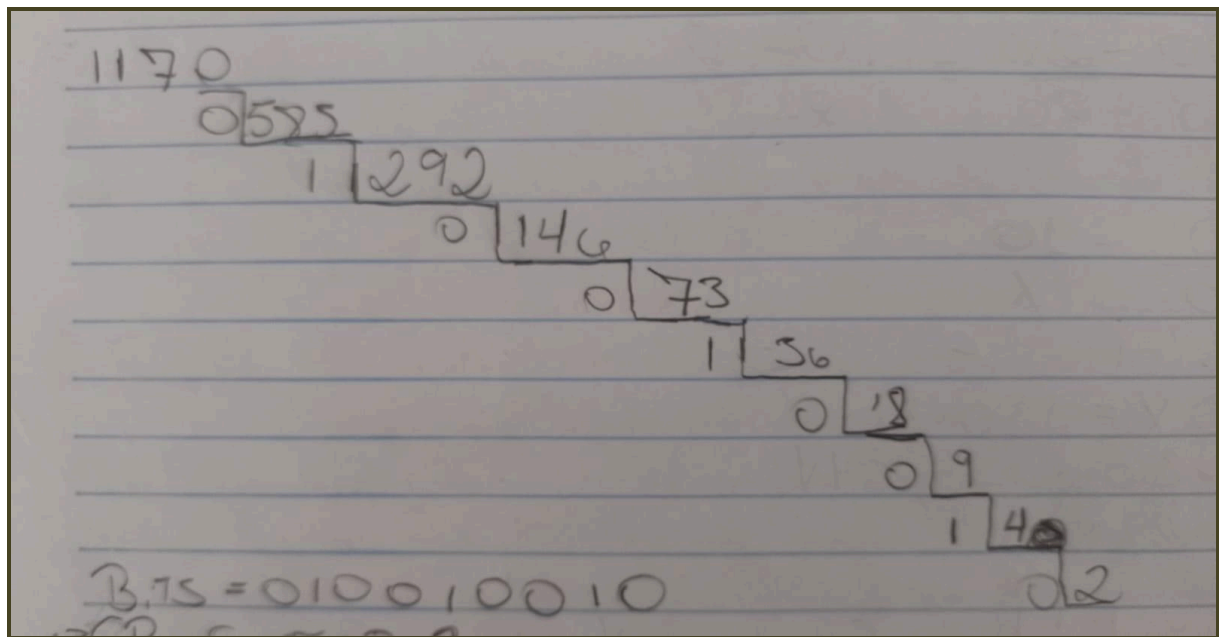 1170
0 585
1 292
0 146
0 73
1 36
0 18
0 9
1 4
0 2
BiTS = 010010010